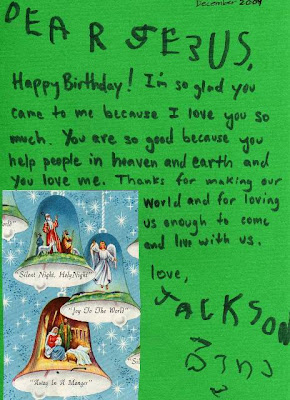 December 2009
DEAR JEZUS,
Happy Birthday! I'm so glad you
came to me because I love you so
much. You are so good because you
help people in heaven and earth and
you love me. Thanks for making our
world and for loving
us enough to come
and live with us.
love,
JACKSON
"Silent Night, Holy Night"
"Joy To The World"
"Away In A Manger"